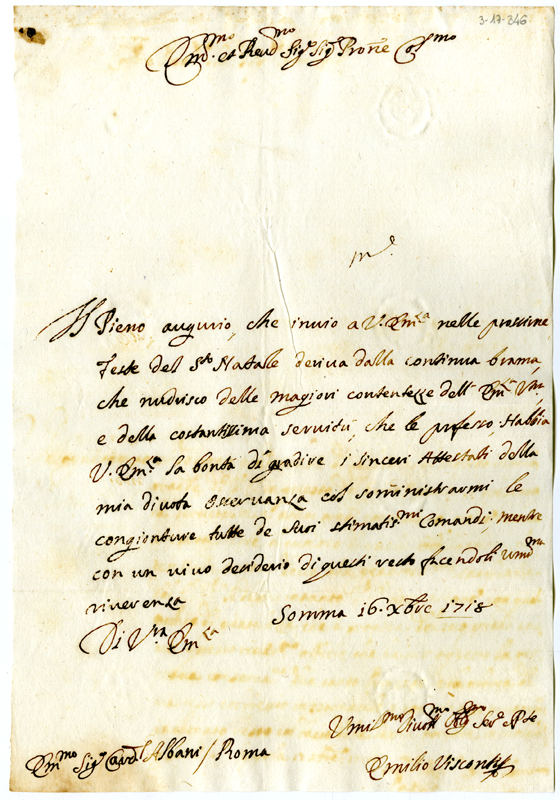 3-17-246
Em.mo et Reud.mo Sig.r Sig.r Prone Col.mo
Il Pieno augurio, che inuio a V. Em.za nelle prossime
feste del S.to Natale deriua dalla continua brama,
che nudrisco delle magiori contentezze dell' Em.za Vra,
e della costantissima seruitù, che le professo, Habbia
V. Em.za la bontà di gradire i sinceri Attestati della
mia diuota osseruanza col somministrarmi le
congionture tutte de Suoi stimatis.mi Comandi; mentre
con un viuo desiderio di questi resto facendoli Umil.ma
riuerenza
Somma 16. Xbre 1718
Di V.ra Em.za
Umil.mo Diuot.mo Obl.mo Ser.e
Em.mo Sig.r Card.l Albani / Roma
Emilio Visconti